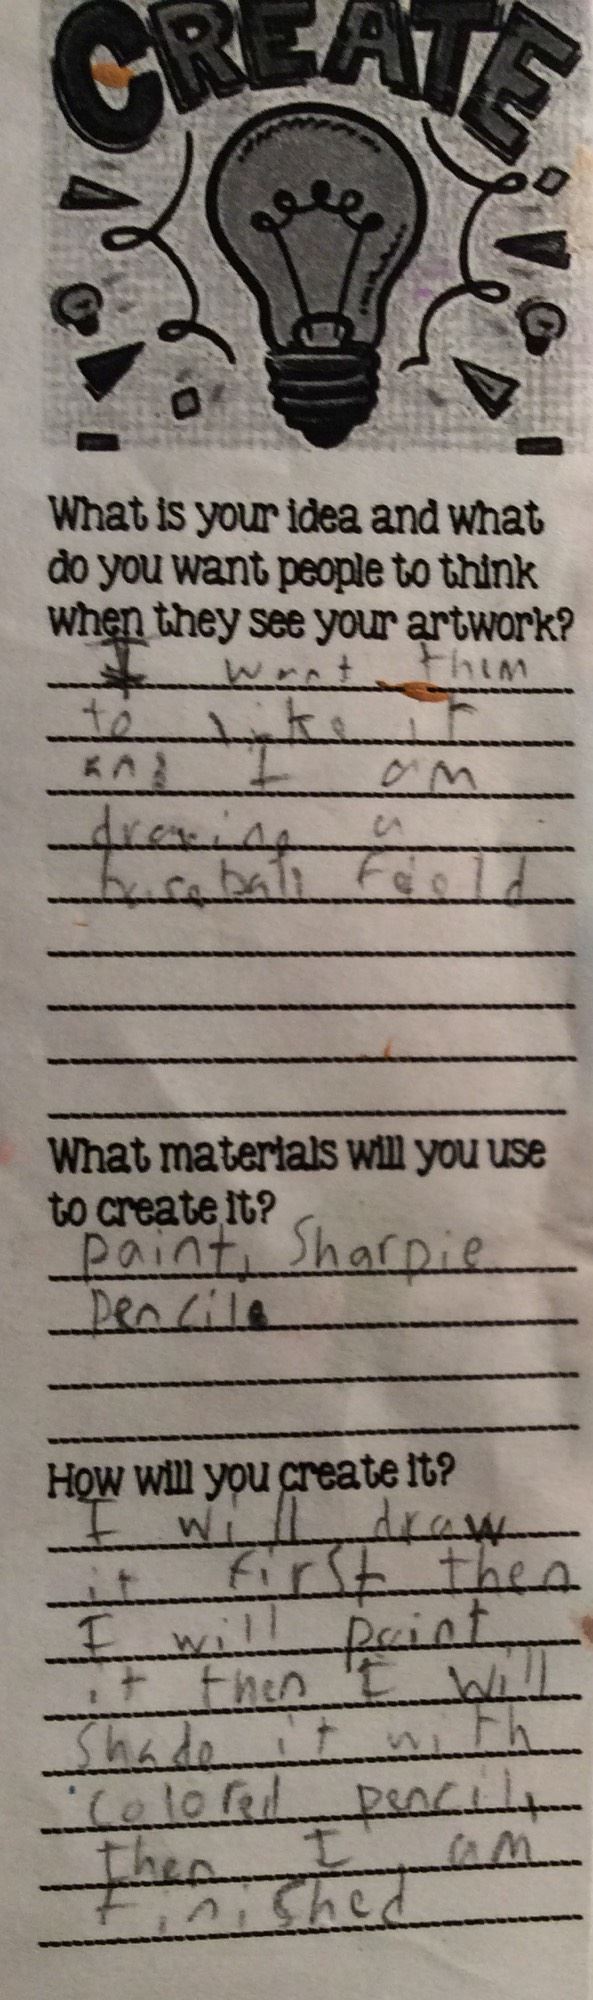 CREATE
What is your idea and what
do you want people to think
when they see your artwork?
I want them
to like it
and I am
drawing a
baseball feold
What materials will you use
to create it?
paint, Sharpie
Pencile
How will you create it?
I will draw
it first then
I will paint
it then I will
Shade it with
colored pencil,
then I am
finished